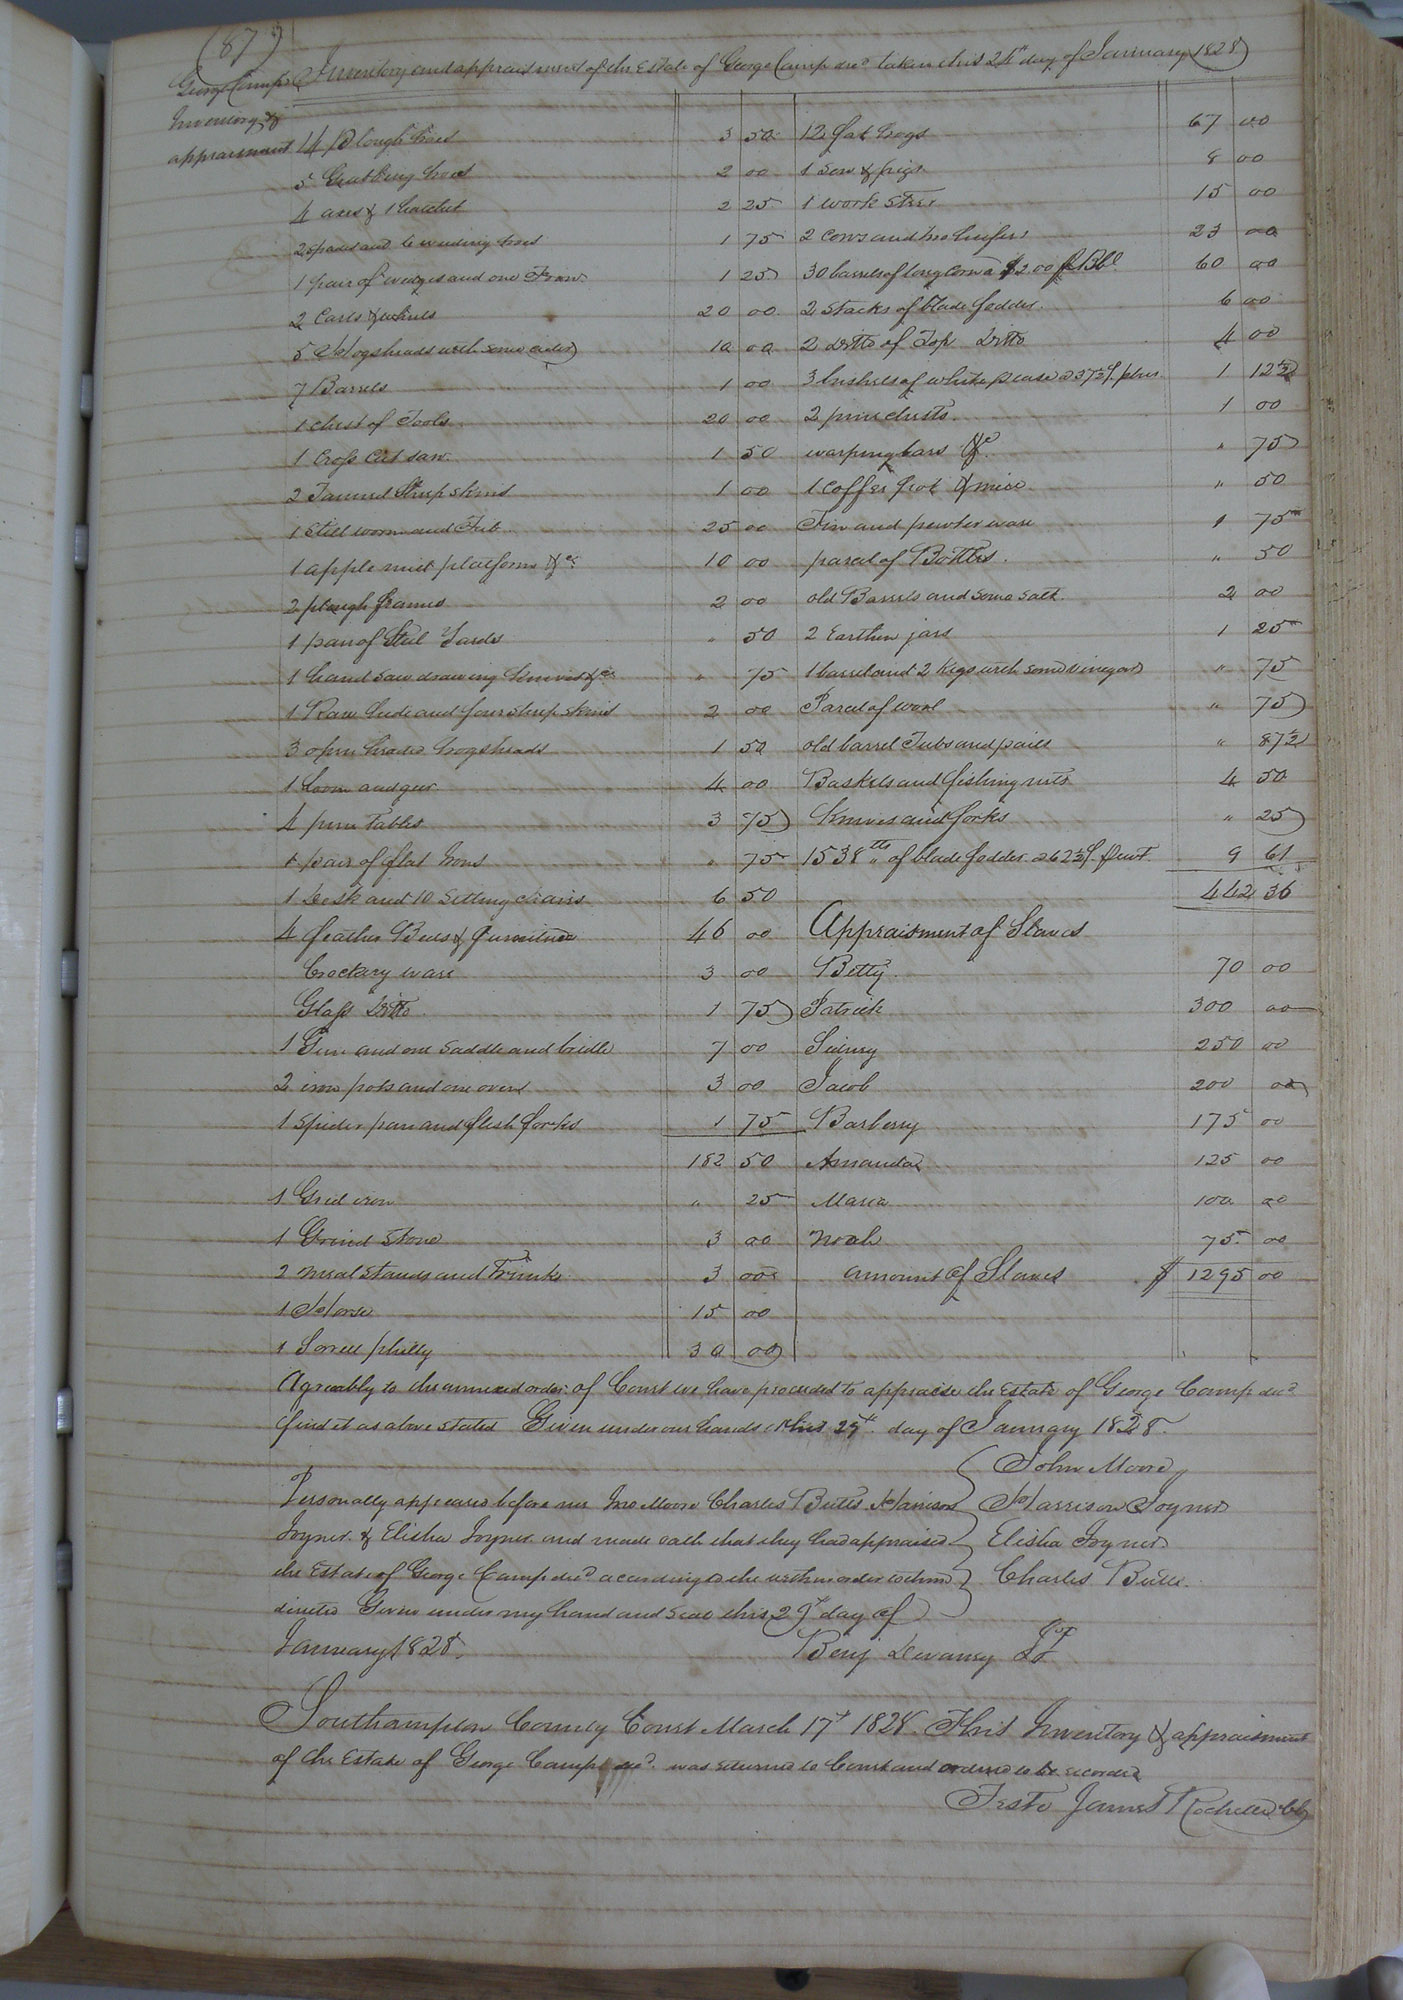 (87)
George Camp's Inventory and appraisment of the Estate of George Camp decd. taken this 24th day of January 1828
Inventory &
appraisment
4 Plough hoes 3 50
5 Grubbing hoes 2 00
4 axes & 1 hatchet 2 25
2 spades and 6 weeding hoes 1 75
1 pair of wedges and one Frow 1 25
2 Carts & wheels 20 00
5 Hogsheads with some cider 10 00
7 Barrels 1 00
1 chest of Tools 20 00
1 Cross Cut saw 1 50
2 Tanned Sheep skins 1 00
1 Still worm and Tub 25 00
1 apple mill platform &c 10 00
2 plough frames 2 00
1 pair of Steel Yards " 50
1 hand saw drawing knives &c " 75
1 Raw hide and four sheep skins 2 00
3 open headed hogsheads 1 50
1 Loom and gear 4 00
4 pine Tables 3 75
1 pair of flat Irons " 75
1 Desk and 10 Setting chairs 6 50
4 feather Beds & furniture 46 00
Crockery ware 3 00
Glass Ditto 1 75
1 Gun and one saddle and bridle 7 00
2 iron pots and one oven 3 00
1 Spider pan and flesh forks 1 75
182 50
1 Grid iron " 25
1 Grind Stone 3 00
2 meal stands and Trunks 3 00
1 Horse 15 00
1 Sorrell philly 30 00
12 fat hogs 67 00
1 Sow & pigs 8 00
1 work Steer 15 00
2 cows and two heifers 23 00
30 barrels of long corn a $2 00 p Bbl 60 00
2 Stacks of blade fodder 6 00
2 ditto of Top Ditto 4 00
3 bushels of white pease a 37½ p bus 1 12½
2 pine chests 1 00
warping bars &c " 75
1 coffee pot & mill " 50
Tin and pewter ware 1 75
parcel of Bottles " 50
old Barrels and some salt 2 00
2 Earthen jars 1 25
1 barrel and 2 kegs with some vinegar " 75
Parcel of wool " 75
old barrel Tubs and pails " 87½
Baskets and fishing nets 4 50
Knives and forks " 25
1538 lbs of blade fodder a 62½ p cwt 9 61
442 36
Appraisment of Slaves
Betty 70 00
Patrick 300 00
Sidney 250 00
Jacob 200 00
Barberry 175 00
Amanda 125 00
Maria 100 00
Noah 75 00
amount of Slaves $ 1295 00
Agreeably to the annexed order of Court we have proceeded to appraise the Estate of George Camp decd.
find it as above stated Given under our hands this 29th day of January 1828.
John Moore
Harrison Joyner
Elisha Joyner
Charles Butts
Personally appeared before me Jno Moore Charles Butts Harrison
Joyner & Elisha Joyner and made oath that they had appraised
the Estate of George Camp decd. according to the within order to them
directed Given under my hand and Seal this 29th day of
January 1828. Benj Devaney JP
Southampton County Court March 17th 1828. This Inventory & appraisment
of the Estate of George Camp decd. was returned to Court and ordered to be recorded
Teste James Rochelle Clk